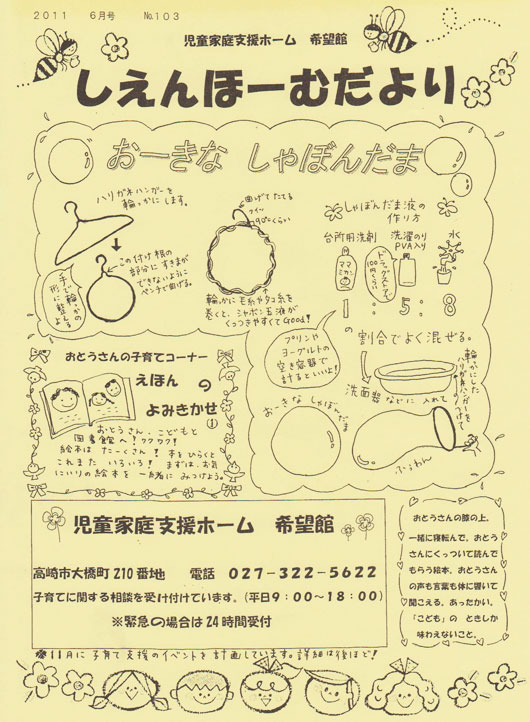 2011　6月号　No.103
児童家庭支援ホーム　希望館
しえんほーむだより
おーきな しゃぼんだま
ハリガネハンガーを
輪っかにします。
この付け根の
部分にすきまが
できないように
ペンチで曲げる。
手で輪っかの
形に整える
曲げてたてる
90°くらい
輪っかに毛糸やタコ糸を
巻くと、シャボン玉液が
くっつきやすくてGood!
しゃぼんだま液の
作り方
台所用洗剤
洗濯のり
PVA入り
水
ママ
ミカン
ドラッグストアで
100円くらい
1：5：8
の割合でよく混ぜる。
プリンや
ヨーグルトの
空き容器で
計るといいよ!
洗面器などに入れて
輪っかにした
ハリガネハンガーを
つけて
おーきな しゃぼーだま
ふぅわん
おとうさんの子育てコーナー
えほん　の
よみきかせ
①
おとうさん、こどもと
図書館へ!ワクワク!
絵本は たーくさん! 本をひらくと
これまた いろいろ! まずは、お気
にいりの絵本を 一緒に みつけよう。
児童家庭支援ホーム　希望館
高崎市大橋町210番地　電話　027-322-5622
子育てに関する相談を受け付けています。(平日9：00～18：00)
※緊急の場合は24時間受付
おとうさんの膝の上。
一緒に寝転んで。おとう
さんにくっついて読んで
もらう絵本。おとうさん
の声も言葉も体に響いて
聞こえる。あったかい。
「こども」の ときしか
味わえないこと。
※11月に子育て支援のイベントを計画しています。詳細は後ほど!